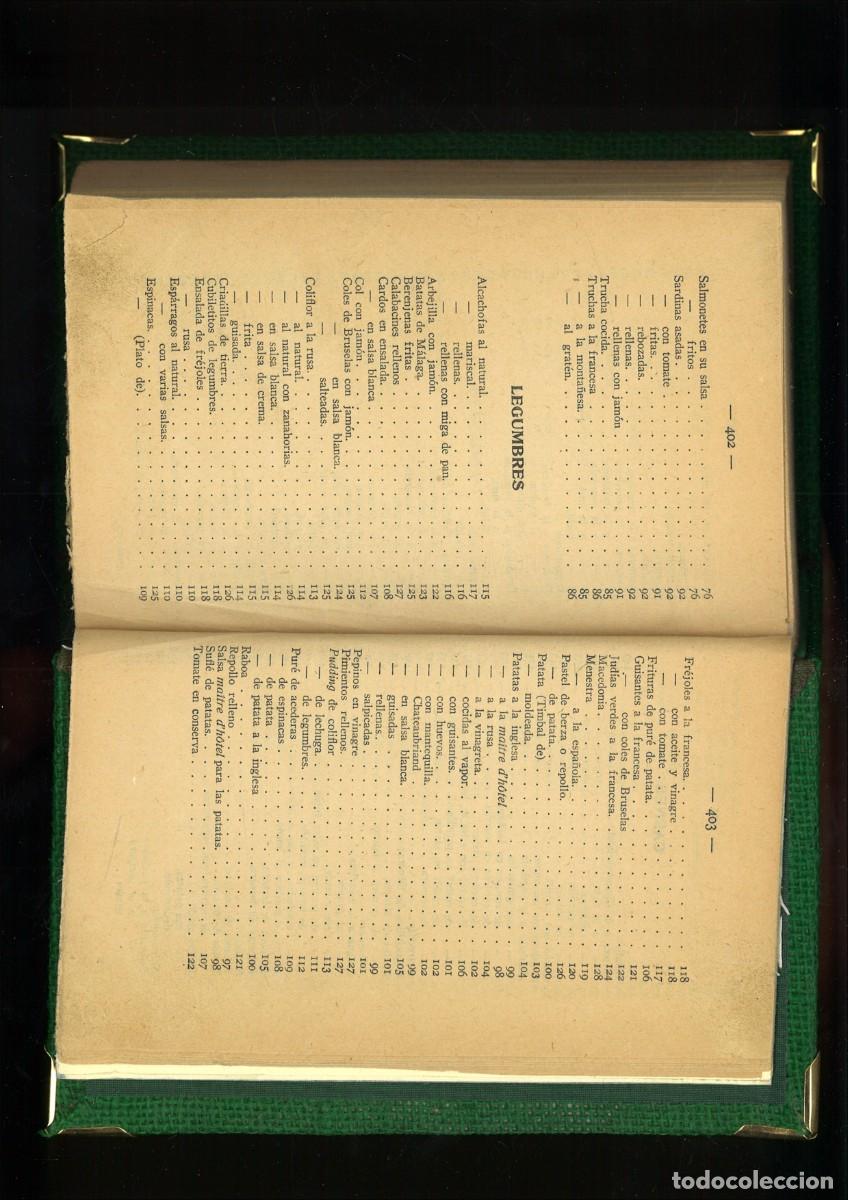 — 402 —
Salmonetes en su salsa . . . . . . 76
— fritos . . . . . . 76
Sardinas asadas. . . . . . 92
— con tomate . . . . . . 92
— fritas. . . . . . 91
— rebozadas. . . . . . 92
— rellenas. . . . . . 92
— rellenas con jamón . . . . . . 91
Trucha cocida. . . . . . 85
Truchas a la francesa . . . . . . 86
— a la montañesa. . . . . . 85
— al gratén. . . . . . 86
LEGUMBRES
Alcachofas al natural. . . . . . 115
— mariscal . . . . . . 117
— rellenas. . . . . . 116
— rellenas con miga de pan. . . . . . 116
Arbejilla con jamón. . . . . . 122
Batatas de Málaga. . . . . . 123
Berenjenas fritas . . . . . . 125
Calabacines rellenos . . . . . . 127
Cardos en ensalada. . . . . . 108
— en salsa blanca . . . . . . 107
Col con jamón. . . . . . 112
Coles de Bruselas con jamón. . . . . . 125
— — en salsa blanca. . . . . . 124
— — salteadas. . . . . . 125
Coliflor a la rusa. . . . . . 113
— al natural. . . . . . 114
— al natural con zanahorias. . . . . . 126
— en salsa blanca. . . . . . 114
— en salsa de crema. . . . . . 115
— frita . . . . . . 115
— guisada. . . . . . 114
Criadillas de tierra. . . . . . 126
Cubiletitos de legumbres. . . . . . 118
Ensalada de fréjoles . . . . . . 118
— rusa . . . . . . 110
Espárragos al natural. . . . . . 110
— con varias salsas. . . . . . 110
Espinacas. . . . . . 125
— (Plato de) . . . . . . 109
— 403 —
Fréjoles a la francesa. . . . . . 118
— con aceite y vinagre . . . . . . 118
— con tomate . . . . . . 117
Frituras de puré de patata. . . . . . 106
Guisantes a la francesa . . . . . . 121
— con coles de Bruselas . . . . . . 122
Judías verdes a la francesa. . . . . . 124
Macedonia . . . . . . 128
Menestra . . . . . . 119
— a la española. . . . . . 120
Pastel de berza o repollo. . . . . . 126
— de patata. . . . . . 100
Patata (Timbal de) . . . . . . 103
— moldeada. . . . . . 104
Patatas a la inglesa . . . . . . 99
— a la maitre d'hôtel . . . . . . 98
— a la rusa . . . . . . 104
— a la vinagreta. . . . . . 102
— cocidas al vapor. . . . . . 106
— con guisantes. . . . . . 101
— con huevos. . . . . . 102
— con mantequilla. . . . . . 102
— Chateaubriand . . . . . . 99
— en salsa blanca. . . . . . 105
— guisadas . . . . . . 101
— rellenas. . . . . . 99
— salpicadas . . . . . . 101
Pepinos en vinagre . . . . . . 127
Pimientos rellenos. . . . . . 127
Pudding de coliflor . . . . . . 113
— de lechuga. . . . . . 111
— de legumbres. . . . . . 112
Puré de acederas . . . . . . 109
— de espinacas . . . . . . 108
— de patata . . . . . . 105
— de patata a la inglesa . . . . . . 100
Raboa . . . . . . 121
Repollo relleno . . . . . . 97
Salsa maitre d'hôtel para las patatas. . . . . . 98
Suflé de patatas. . . . . . 107
Tomate en conserva . . . . . . 122
todocoleccion